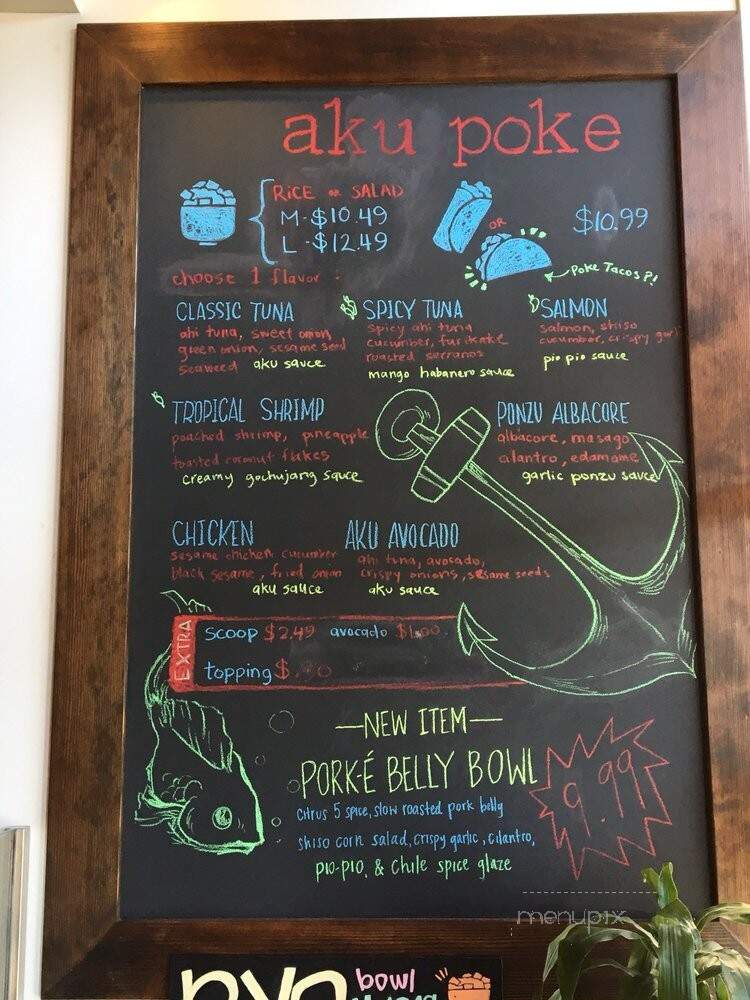 aku poke
RiCE or SALAD
M-$10.49
L-$12.49
OR
$10.99
Poke Tacos?!
choose 1 flavor:
CLASSIC TUNA
ahi tuna, sweet onion,
green onion, sesame seed
seaweed aku sauce
SPICY TUNA
spicy ahi tuna
cucumber, furikake
roasted serranos
mango habanero sauce
SALMON
salmon, shiso
cucumber, crispy
pio pio sauce
TROPICAL SHRIMP
poached shrimp, pineapple
toasted coconut flakes
creamy gochujang sauce
PONZU ALBACORE
albacore, masago
cilantro, edamame
garlic ponzu sauce
CHICKEN
sesame chicken cucumber
black sesame, fried onion
aku sauce
AKU AVOCADO
ahi tuna, avocado,
crispy onions, sesame seeds
aku sauce
EXTRA
scoop $2.49 avocado $1.00
topping
—NEW ITEM—
PORK-É BELLY BOWL
9.99
Citrus 5 spice, slow roasted pork belly
shiso corn salad, crispy garlic, cilantro,
pio-pio, & Chile spice glaze
menupix
bowl